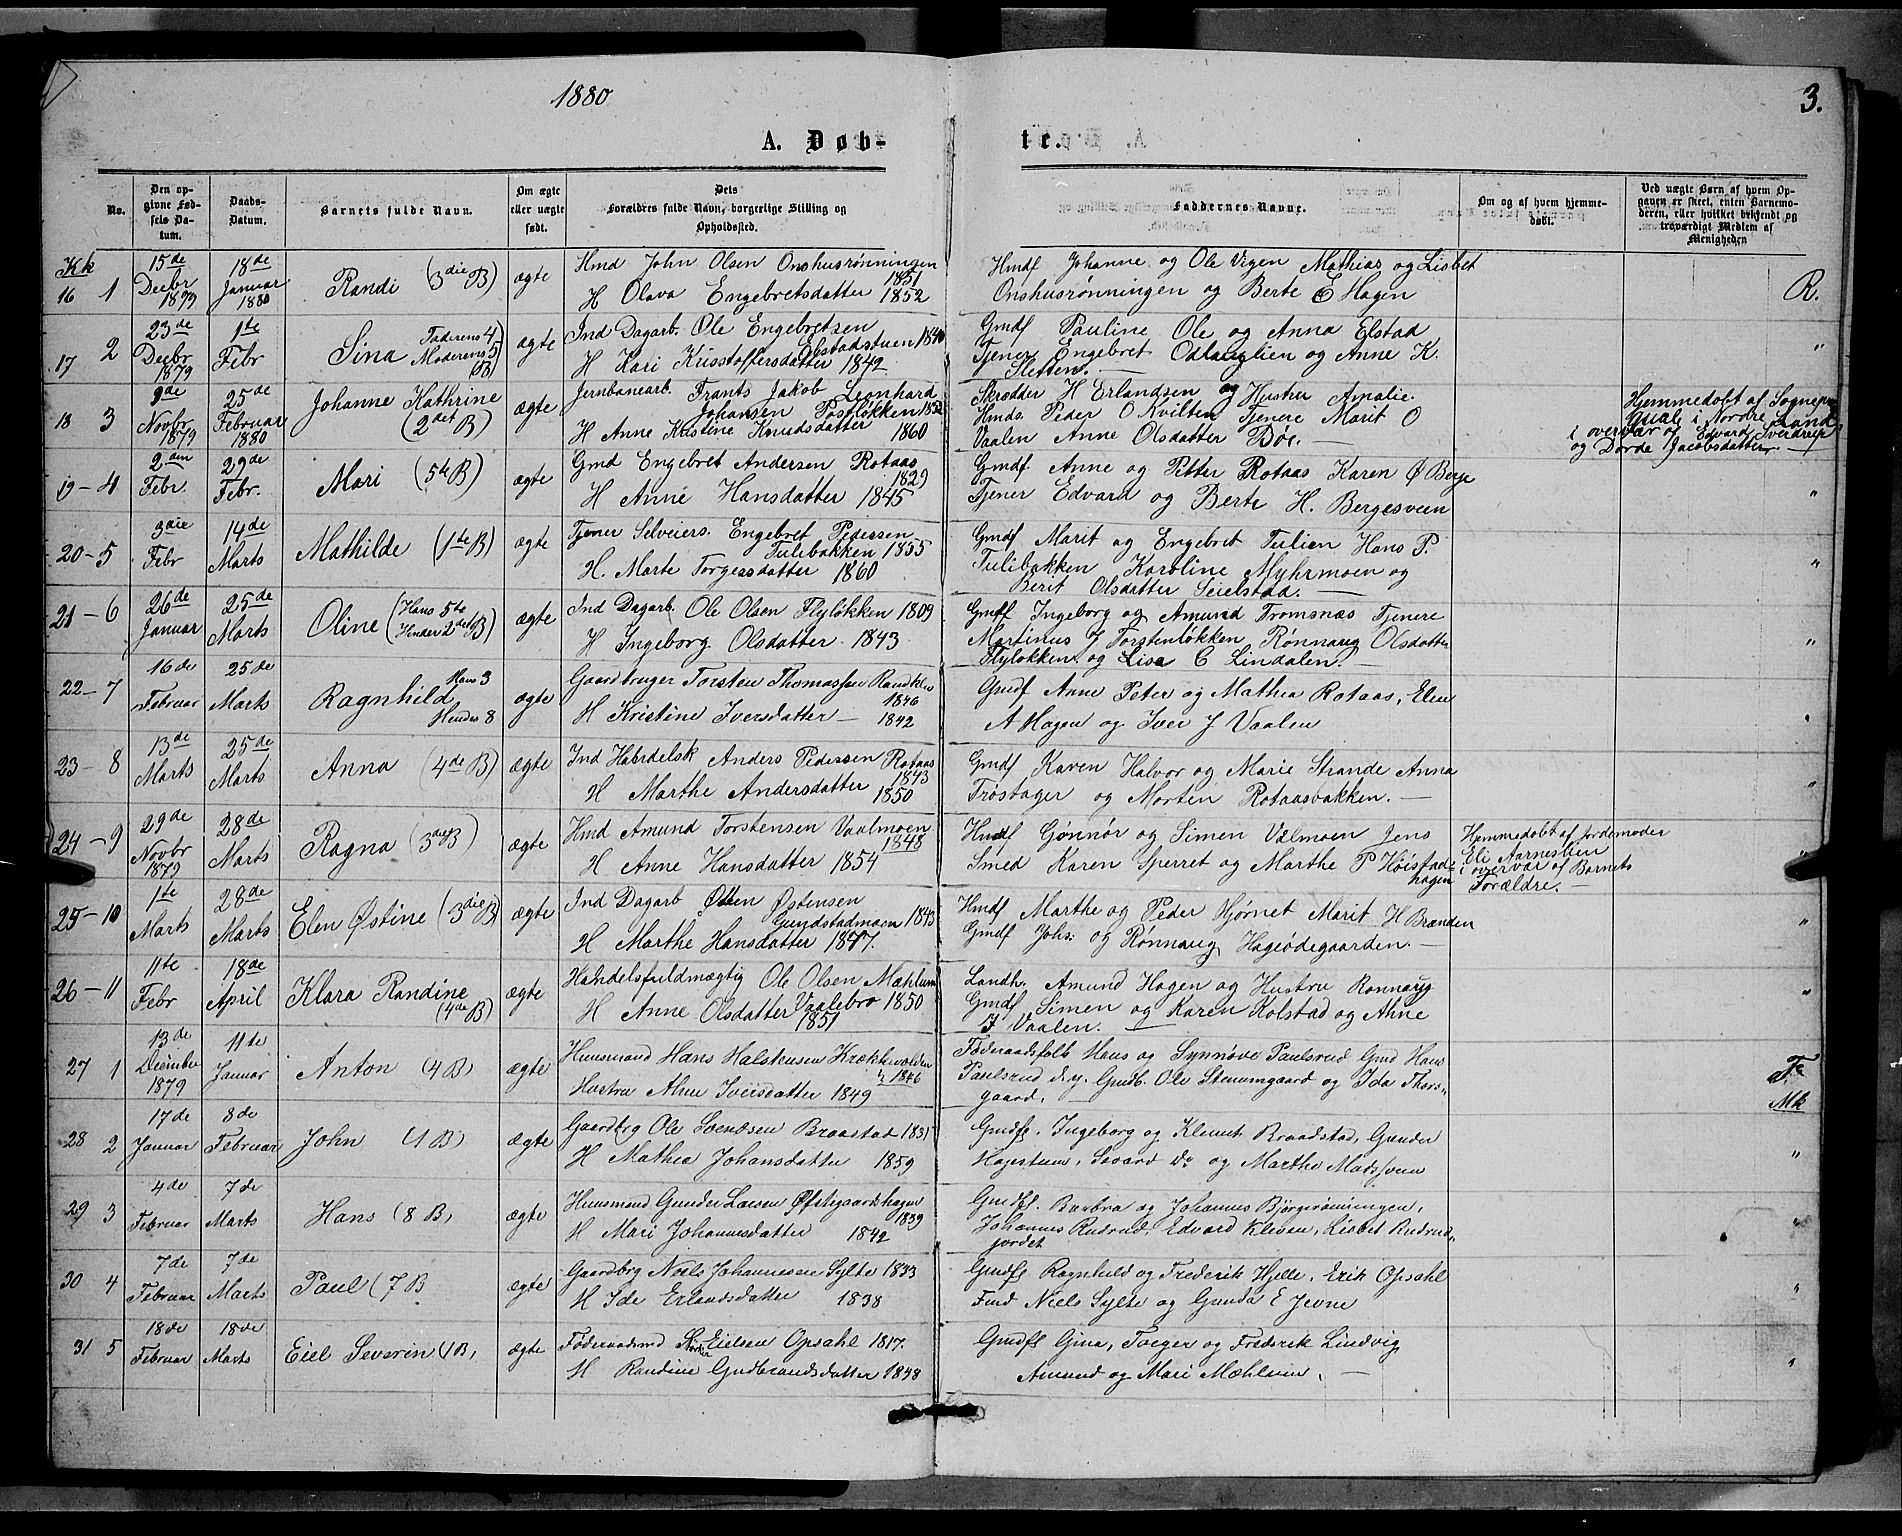 1880
3.
A. Døb-
te.
No.
Den opgivne Fødsels Datum.
Daabs-Datum.
Barnets fulde Navn.
Om ægte eller uægte født.
Dets Forældres fulde Navn, borgerlige Stilling og Opholdssted.
Faddernes Navne.
Om og af hvem hjemmedøbt.
Ved uægte Børn af hvem Opgaven er skeet, enten Barnemoderen, eller hvilket bekjendt og troværdigt Medlem af Menigheden
Kk
16 1 15de Decbr 1879 18de Januar 1880 Randi (3die B) ægte
Hmd John Olsen Onshusrønningen 1851
H Olava Engebretsdatter 1852
Hmdf Johanne og Ole Vigen Mathias og Lisbet
Onshusrønningen og Berte E Hagen
R.
17 2 23de Decbr 1879 1te Febr Sina Faderens 4 Moderens 5 (B) ægte
Ind Dagarb. Ole Engebretsen Elstadstuen 1840
H Kari Kristoffersdatter 1842
Gmdf Pauline Ole og Anna Elstad
Tjener Engebret Odlauglien og Anne K.
Sletten. "
18 3 9de Novbr 1879 25de Februar 1880 Johanne Kathrine (2det B) ægte
Jernbanearb. Frants Jakob Leonhard
Johansen Postløkken 1852
H Anne Kristine Knudsdatter 1860
Skrædder H Erlandsen og Hustru Amalie
Hmds Peder O Kvilten Tjenere Marit O
Vaalen Anne Olsdatter Böe. —
Hjemmedøbt af Sognepr.
Quale i Nordre Land
i overvær af Edvard Sverdrup
og Dorde Jacobsdatter.
19 - 4 2den Febr. 29de Febr. Mari (5te B) ægte
Gmd Engebret Andersen Rotaas 1829
H Anne Hansdatter 1845
Gmdf. Anne og Petter Rotaas Karen Ø Berge
Tjener Edvard og Berte H. Bergesveen "
20 - 5 3die Febr 14de Marts Mathilde (1te B) ægte
Tjener Selveiers. Engebret Pedersen
Tulibakken 1855
H. Marte Torgersdatter 1860
Gmdf Marit og Engebret Tulien Hans P.
Tulibakken Karoline Myhrmoen og
Berit Olsdatter Seielstad. — "
21 - 6 26de Januar 25de Marts Oline (Hans 5te Hendes 2det B) ægte
Ind Dagarb. Ole Olsen Flyløkken 1809
H Ingeborg Olsdatter 1843
Gmdf Ingeborg og Amund Tromsnæs Tjenere
Martinus J Torstenløkken Rønnaug Olsdatter
Flyløkken og Lisa C Lindalen. — "
22 - 7 16de Februar 25de Marts Ragnhild Hans 3 Hendes 8 ægte
Gaardbruger Torsten Thomassen Randklev 1846
H Kristine Iversdatter — 1842
Gmdf Anne Peter og Mathea Rotaas, Elen
A Hagen og Iver J Vaalen "
23 - 8 13de Marts 25de Marts Anna (4de B) ægte
Ind Handelsk Anders Pedersen Rotaas 1843
H Marthe Andersdatter 1850
Gmdf Karen Halvor og Marie Strande Anna
Trøstager og Morten Rotaasbakken. — "
24 - 9 29de Novbr 1879 28de Marts Ragna (3die B) ægte
Hmd Amund Torstensen Vaalmoen 1848
H Anne Hansdatter 1854
Hmdf Gønnør og Simen Vælmoen Jens
Smed Karen Sperret og Marthe P Høistadhagen
Hjemmedøbt af Jordemoder
Eli Aarneslien
i overvær af Barnets
Forældre. — "
25 - 10 1te Marts 28de Marts Elen Østine (3die B) ægte
Ind Dagarb Østen Østensen
Gundstadmoen 1843
H Marthe Hansdatter 1847.
Hmdf Marthe og Peder Hjørnet Marit H Brænden
Gmdf Johs: og Rønnaug Hagiødegaarden. — "
26 - 11 11te Febr 18de April Klara Randine (4de B) ægte
Handelsfuldmægtig Ole Olsen Mæhlum
Vaalebro 1850
H Anne Olsdatter 1851
Landh. Amund Hagen og Hustru Rønnaug
Gmdf Simen og Karen Kolstad og Anne
J Vaalen. — "
27 1 13de December 1879 11te Januar Anton (4 B) ægte
Huusmand Hans Halstensen Krækkevolden 1846
Hustru Ane Iversdatter 1849
Føderaadsfolk Hans og Synnøve Paulsrud Gmd Hans
Paulsrud d.y. Gmdb. Ole Stenumgaard og Ida Thorsgaard.
Fo
Mk
28 2 17de Januar 8de Februar John (1 B) ægte
Gaardbrg Ole Svendsen Braastad 1831
H Mathea Johansdatter 1859
Gmdf. Ingeborg og Klemet Braadstad, Gunder
Hagestuen, Sevard Do og Marthe Madssveen "
29 3 4de Februar 7de Marts Hans (8 B) ægte
Huusmand Gunder Larsen Øfstegaardshagen 1839
H Mari Johannesdatter 1842
Gmdf. Barbra og Johannes Bjørgerønningen,
Johannes Rudrud, Edvard Kleven, Lisbet Rudrudjordet "
30 4 7de Februar 7de Marts Paul (7 B ægte
Gaardbrg Niels Johannesen Sylte 1833
H Ide Erlandsdatter 1838
Gmdf Ragnhild og Frederik Hjelle, Erik Opsahl
Fmd Niels Sylte og Gunda E Jevne "
31 5 18de Februar 18de Marts Eiel Severin (1 B) ægte
Føderaadsmd Eielsen Opsahl 1817.
H Randine Gudbrandsdatter 1838
Gmdf Gina, Torger og Frederik Lindvig
Amund og Mari Mæhlum. — "